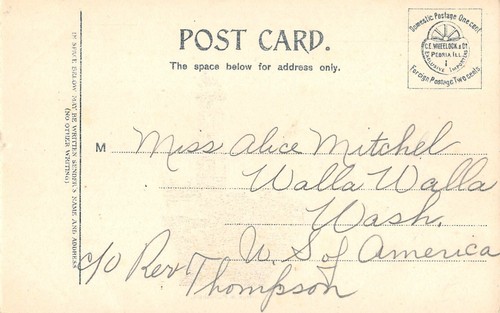 POST CARD.
The space below for address only.
Domestic Postage One cent
C.E. WHEELOCK & CO
PEORIA ILL.
EXCLUSIVE IMPORTERS
Foreign Postage Two cents
IN SPACE BELOW MAY BE WRITTEN SENDER'S NAME AND ADDRESS
(NO OTHER WRITING.)
M Miss Alice Mitchel
Walla Walla
Wash.
U.S of America
c/o Rev. Thompson